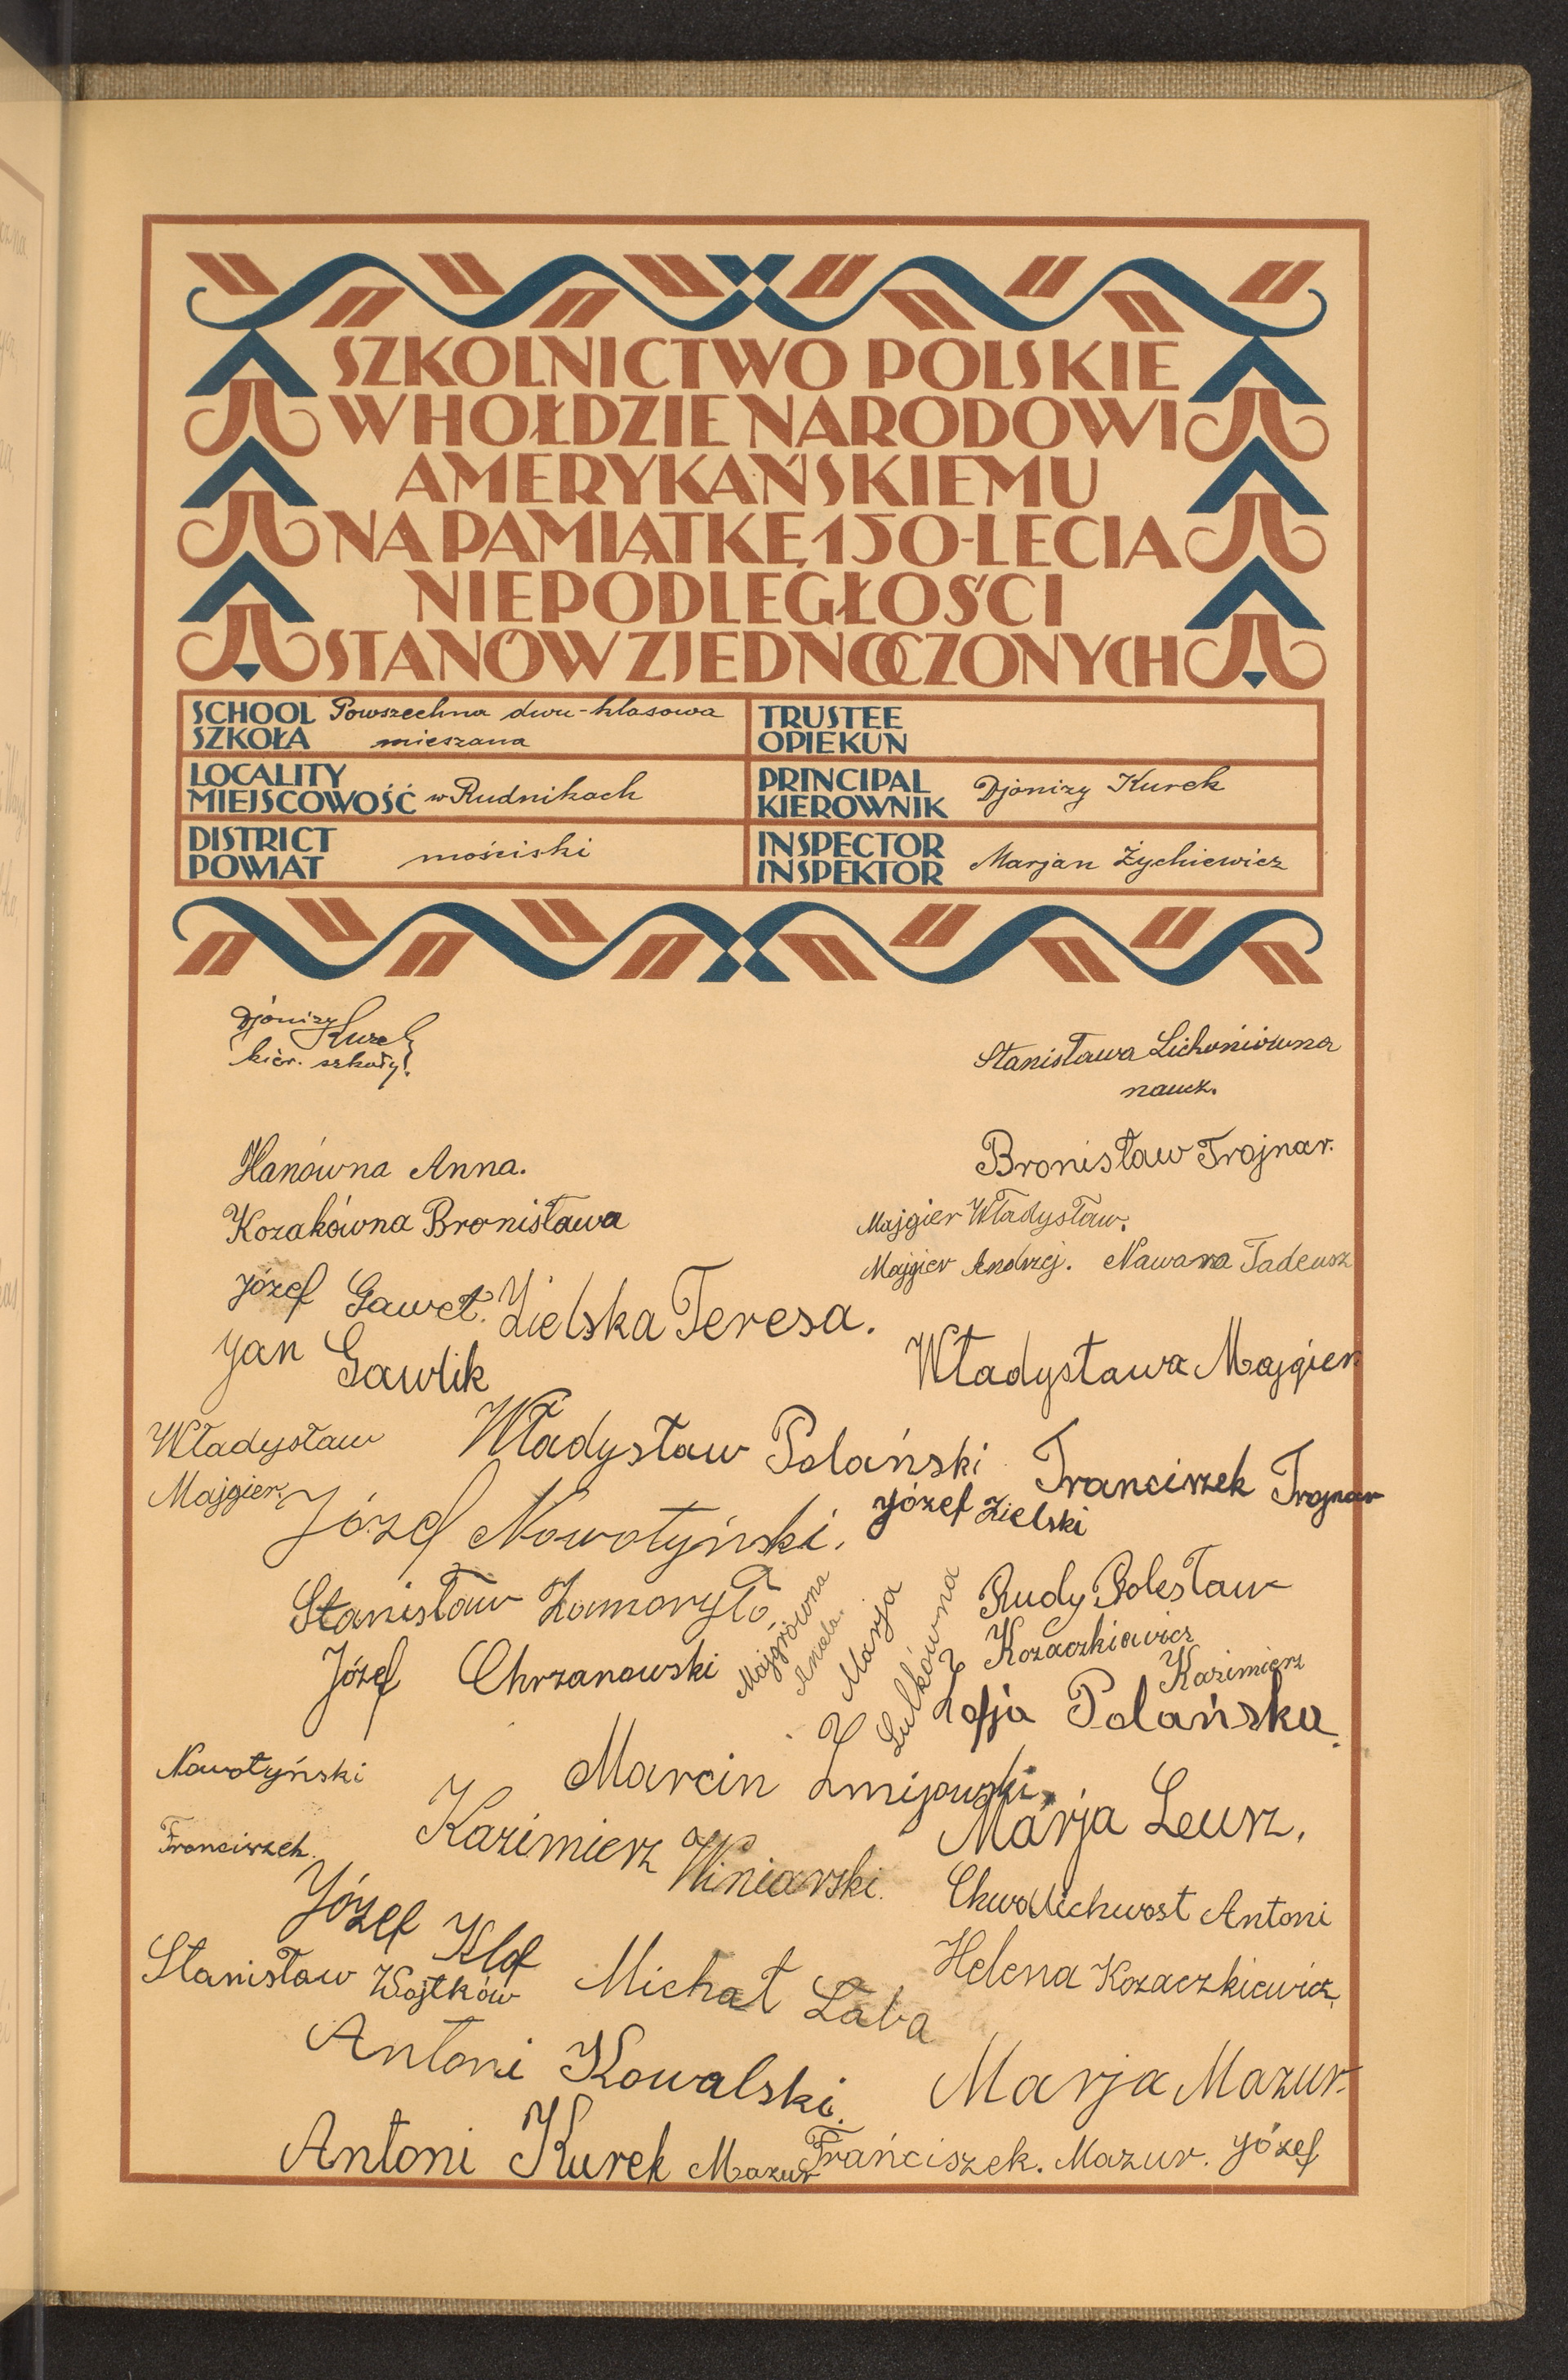 SZKOLNICTWO POLSKIE
W HOŁDZIE NARODOWI
AMERYKAŃSKIEMU
NA PAMIĄTKĘ 150-LECIA
NIEPODLEGŁOŚCI
STANÓW ZJEDNOCZONYCH
SCHOOL SZKOŁA Powszechna dwu-klasowa mieszana
TRUSTEE OPIEKUN
LOCALITY MIEJSCOWOŚĆ w Rudnikach
PRINCIPAL KIEROWNIK Djonizy Kurek
DISTRICT POWIAT mościski
INSPECTOR INSPEKTOR Marjan Żychiewicz
Djonizy Kurek
kier. szkoły!
Stanisława Lichoniówna
naucz.
Hanówna Anna.
Bronisław Trojnar.
Kozakówna Bronisława
Majgier Władysław.
Majgier Andrzej. Nawara Tadeusz
Józef Gaweł.
Zielska Teresa.
Jan Gawlik
Władysława Majgier
Władysław
Majgier.
Władysław Polański
Franciszek Trojnar
Józef Nowotyński.
Józef Zielski
Stanisław Zamoryło,
Majgrówna
Aniela.
Marja
Lulkówna
Rudy Bolesław
Józef Chrzanowski
Kozaczkiewicz
Kazimierz
Zofja Polańska.
Nowotyński
Franciszek.
Marcin Żmijowski.
Marja Leusz.
Kazimierz Winiarski.
Chwalichwost Antoni
Józef Klof
Helena Kozaczkiewicz.
Stanisław Wojtków
Michał Łaba
Antoni Kowalski.
Marja Mazur.
Antoni Kurek
Mazur Franciszek. Mazur. Józef